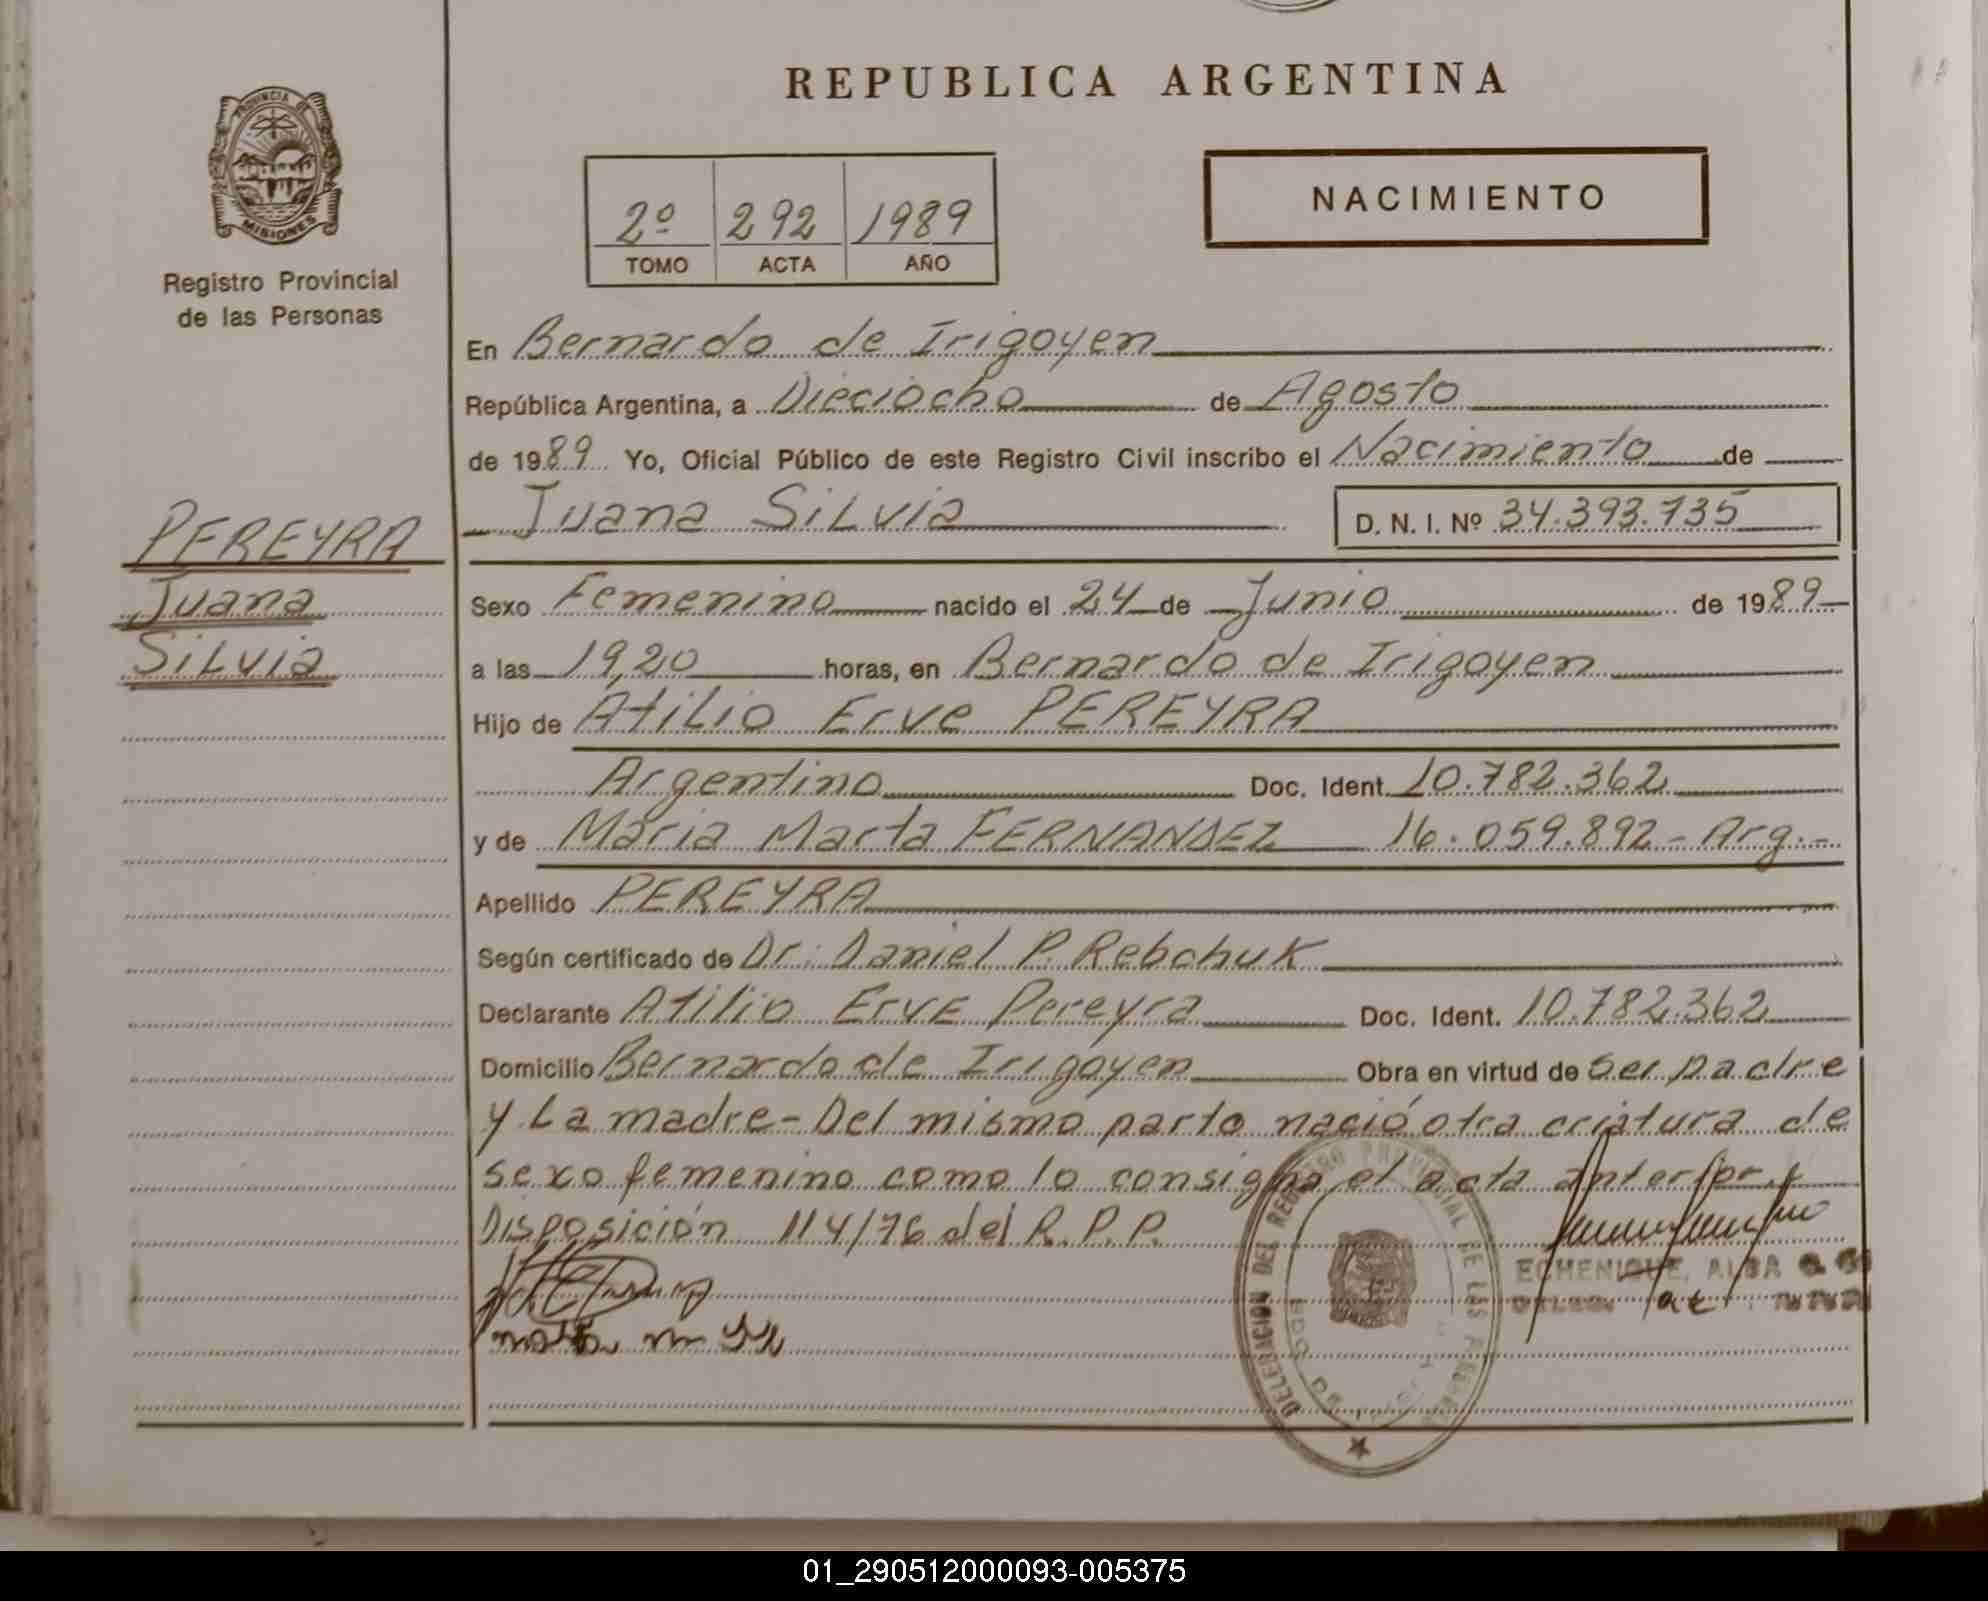 REPUBLICA ARGENTINA
PROVINCIA DE
MISIONES
Registro Provincial
de las Personas
2º 292 1989
TOMO ACTA AÑO
NACIMIENTO
En Bernardo de Irigoyen
República Argentina, a Dieciocho de Agosto
de 1989 Yo, Oficial Público de este Registro Civil inscribo el Nacimiento de
Juana Silvia D. N. I. Nº 34.393.735
PEREYRA
Juana
Silvia
Sexo Femenino nacido el 24 de Junio de 1989
a las 19,20 horas, en Bernardo de Irigoyen
Hijo de Atilio Erve PEREYRA
Argentino Doc. Ident. 10.782.362
y de Maria Marta FERNANDEZ 16.059.892 - Arg.-
Apellido PEREYRA
Según certificado de Dr: Daniel P. Rebchuk
Declarante Atilio Erve Pereyra Doc. Ident. 10.782.362
Domicilio Bernardo de Irigoyen Obra en virtud de ser padre
y La madre - Del mismo parto nació otra criatura de
sexo femenino como lo consigna el acta anterior y
Disposición 114/76 del R. P. P.
DELEGACION DEL REGISTRO PROVINCIAL DE LAS PERSONAS
ECHENIQUE, ALBA
01_290512000093-005375